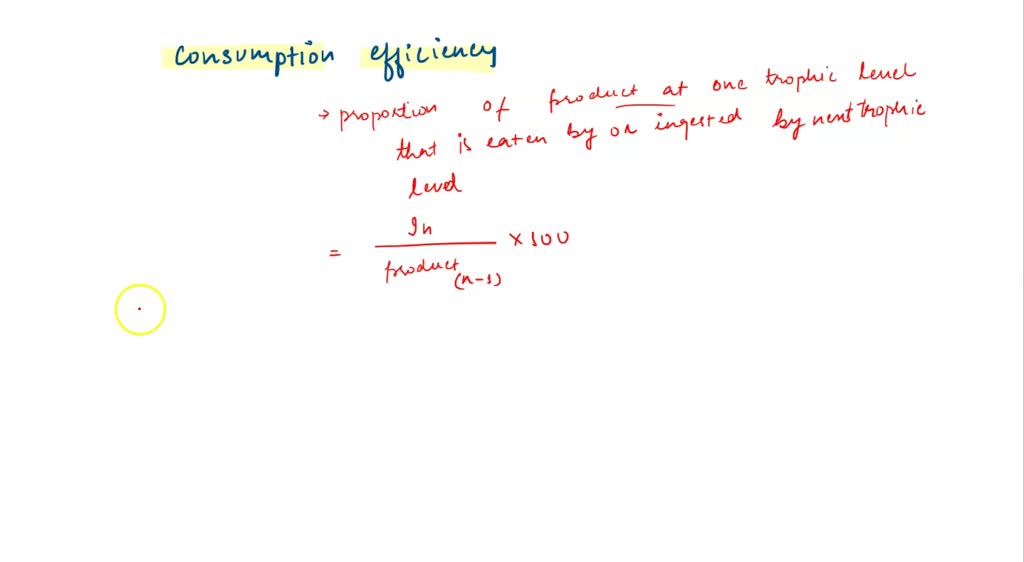 Consumption efficiency
→ proportion of product at one trophic level
that is eaten by or ingested by next trophic
level
= In / product (n-1) × 100